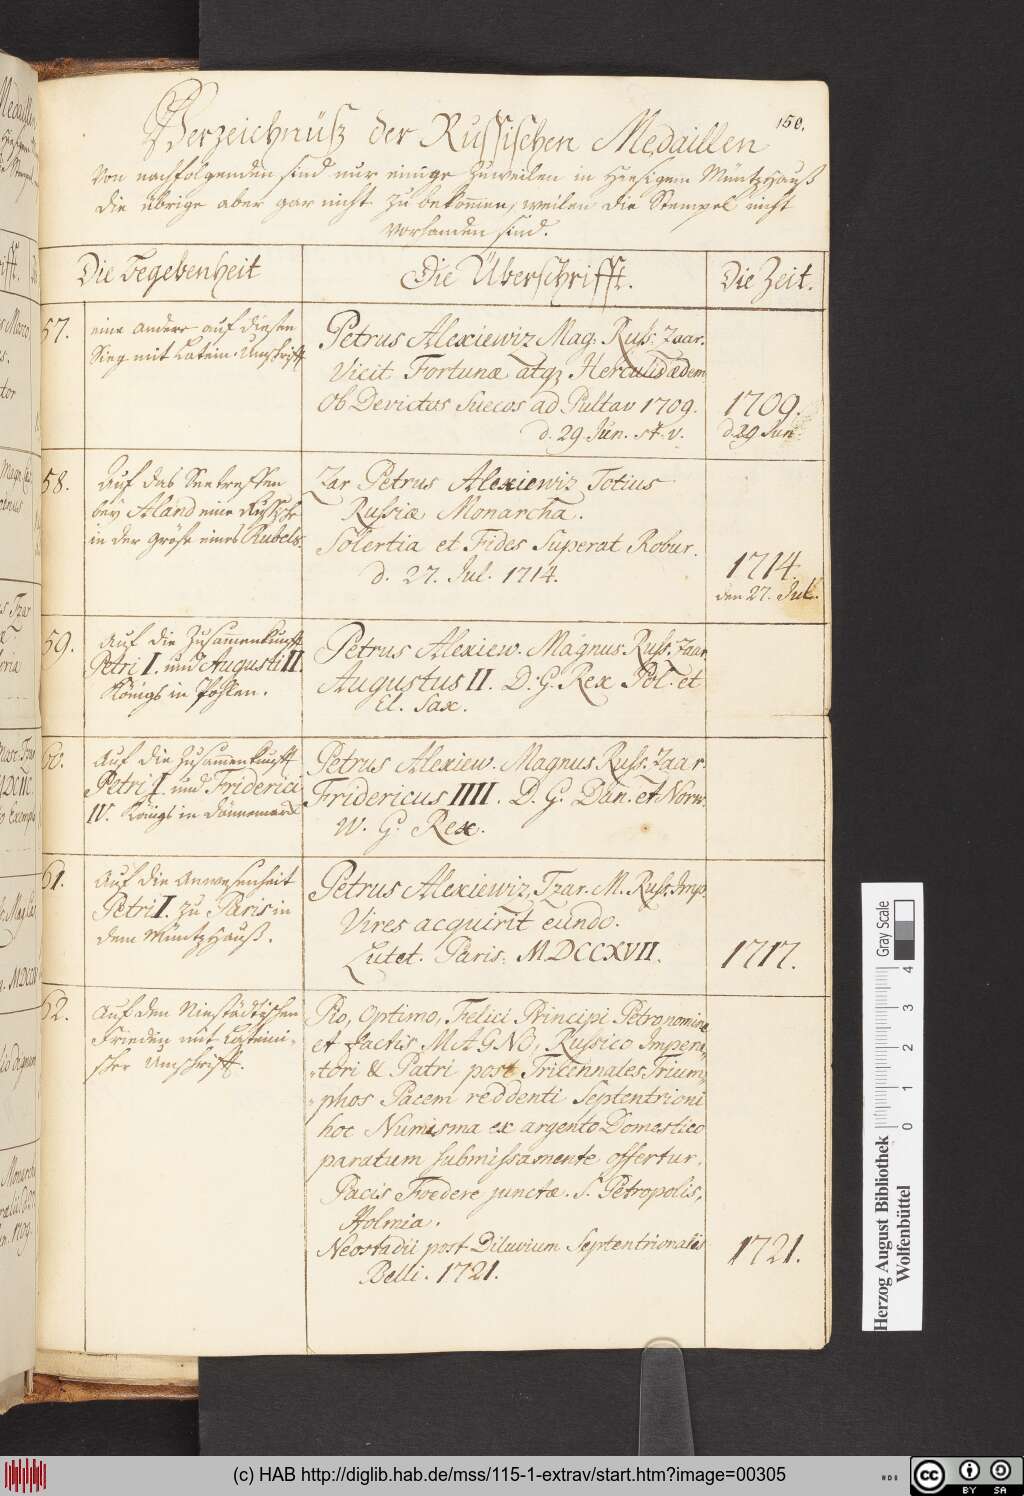 150.
Verzeichnüß der Russischen Medaillen
Von nachfolgenden sind nur einige zuweilen in hiesigem Müntzhauß
die übrige aber gar nicht zu bekom̄en, weilen die Stempel nicht
vorhanden sind.
Die Begebenheit
Die Überschrifft.
Die Zeit.
57.
eine andere auf diesen
Sieg mit Latein. Umschrifft
Petrus Alexiewiz Mag: Russ: Zaar.
Vicit Fortunæ atq; Herculis ædem
Ob Devictos Suecos ad Pultav 1709.
d. 29 Jun. st. v.
1709.
d. 29 Jun.
58.
Auf das Seetreffen
bey Aland eine
in der Größe eines Rubels.
Zar Petrus Alexiewiz Totius
Russiæ Monarcha.
Solertia et Fides Superat Robur.
d. 27. Jul. 1714.
1714.
den 27. Jul.
59.
Auf die Zusammenkunfft
Petri I. und Augusti II.
Königs in Pohlen.
Petrus Alexiew. Magnus Russ. Zaar
Augustus II. D. G. Rex Pol. et
El. Sax.
60.
Auf die Zusamenkunfft
Petri I. und Friderici
IV. Königs in Dännemarck
Petrus Alexiew. Magnus Russ. Zaar.
Fridericus IIII. D. G. Dan. et Norw.
W. G. Rex.
61.
Auf die Anwesenheit
Petri I. zu Paris in
dem Müntzhauß.
Petrus Alexiewiz, Tzar. M. Russ. Imp.
Vires acquirit eundo.
Lutet. Paris: MDCCXVII.
1717.
62.
Auf den Niestädtischen
Frieden mit Lateini-
scher Umschrifft.
Pio, Optimo, Felici Principi Petro nomine
et factis MAGNO, Russico Impera-
tori & Patri post Tricennales Trium-
phos Pacem reddenti Septentrioni
hoc Numisma ex argento Domestico
paratum submissamente offertur.
Pacis Foedere junctæ. S. Petropolis,
Holmia.
Neostadii post Diluvium Septentrionalis
Belli. 1721.
1721.
Herzog August Bibliothek
Wolfenbüttel
Gray Scale
0 1 2 3 4
(c) HAB http://diglib.hab.de/mss/115-1-extrav/start.htm?image=00305
cc BY SA